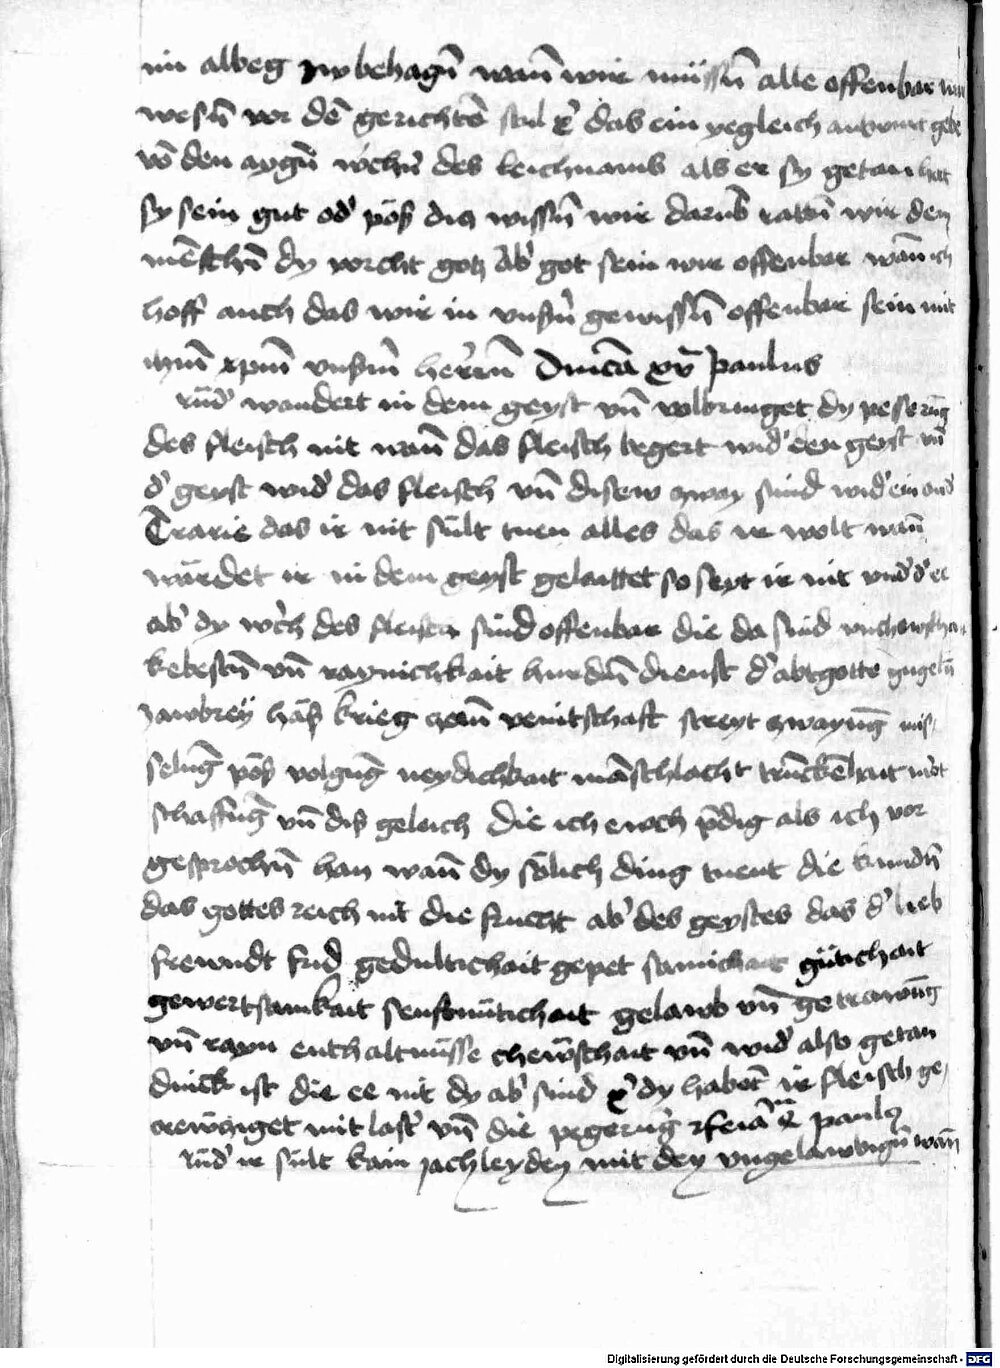 im albeg zw behagn̄ wan̄ wir müssn̄ alle offenbar
wesn̄ vor dē gerichtē stul x̄ das ein yegleich antwurt gebe
vō den aygn̄ wʼchn̄ des leichnams als er sy getan hat
sy sein gut odʼ pös̄ dis wissn̄ wir darūb ratn̄ wir den
mēschn̄ dy vorcht gotz Abʼ got sein wir offenbar wan̄ ich
hoff auch das wir in unsʼn̄ gewissn̄ offenbar sein mit
xpm̄ unsʼm̄ herrn̄ Dmīca xv Paulus
rūdʼ wandert in dem geyst vn̄ volbringet dy pegerūg
des fleisch nit wan̄ das fleisch begert widʼ den geyst vn̄
dʼ geyst widʼ das fleisch vn̄ disew zway sind widʼ ein andʼ
Trarie das ir nit sült tuen alles das ir wolt wan̄
würdet ir in dem geyst gelaittet so seyt ir nit undʼ dʼ ee
abʼ dy wʼch des fleisch sind offenbar die da sind
vn̄ raynichkait hurdn̄ dienst dʼ abtgotte
zawbrey hās krieg veintschaft streyt zwayūg mis
selūg pös̄ volgūg neydichkait māschlacht trūckēhait
schaffūg vn̄ dis geleich die ich ewch pʼdig als ich vor
gesprochn̄ han wan̄ dy sölich ding tuent die
das gottes reich nit die frucht abʼ des geystes das dʼ lieb
frewndt frid gedultichait gepet gütichait
senftmütichait gelawb vn̄ getrawūg
vn̄ rayn enthaltnüsse chewschait vn̄ widʼ also getan
dinck ist die ee nit dy abʼ sind x̄ dy habēt ir fleisch ge
crewziget mit lastʼ vn̄ die pegerūg feria Paulus
rūdʼ ir sült kain joch leyden mit den ungelawbign̄ wan̄
Digitalisierung gefördert durch die Deutsche Forschungsgemeinschaft - DFG